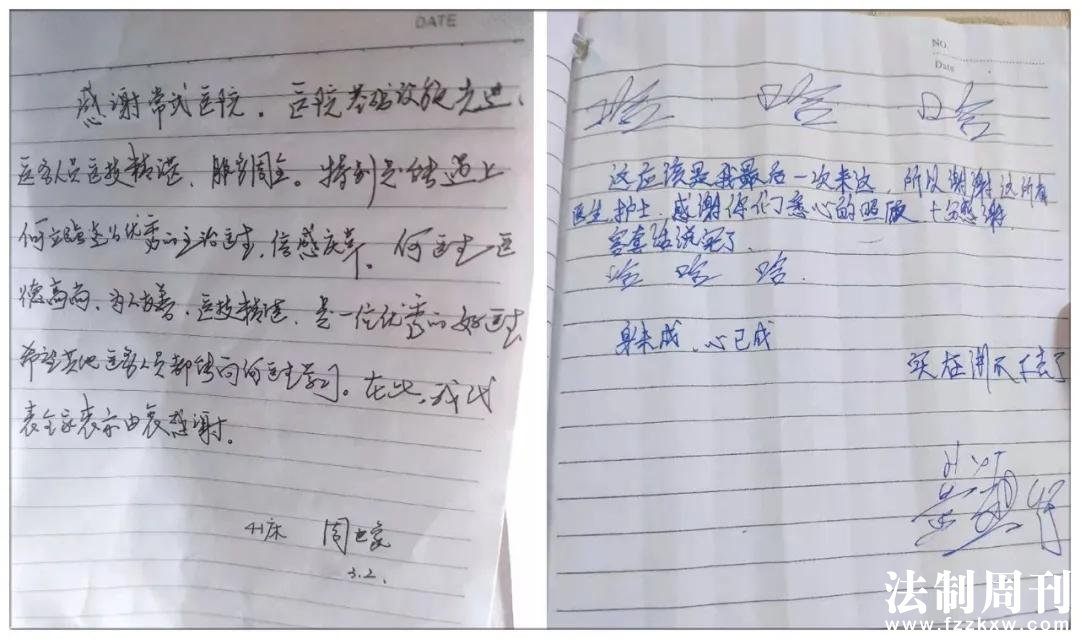 DATE
感谢常武医院。医院基础设施先进、
医务人员医技精湛、服务周全。特别是能遇上
何立临这位优秀的主治医生,倍感庆幸。何医生医
德高尚、为人友善、医技精湛、是一位优秀的好医生
希望其他医务人员都能向何医生学习。在此,我代
表全家表示由衷感谢。
41床 周世家
3.2.
NO.
Date
哈 哈 哈
这应该是我最后一次来这,所以谢谢这所有
医生,护士,感谢你们悉心的照顾 十分感谢
客套话说完了、
哈 哈 哈.
身未成、心已成
实在讲不下去了
法制周刊
www.fzzkxw.com